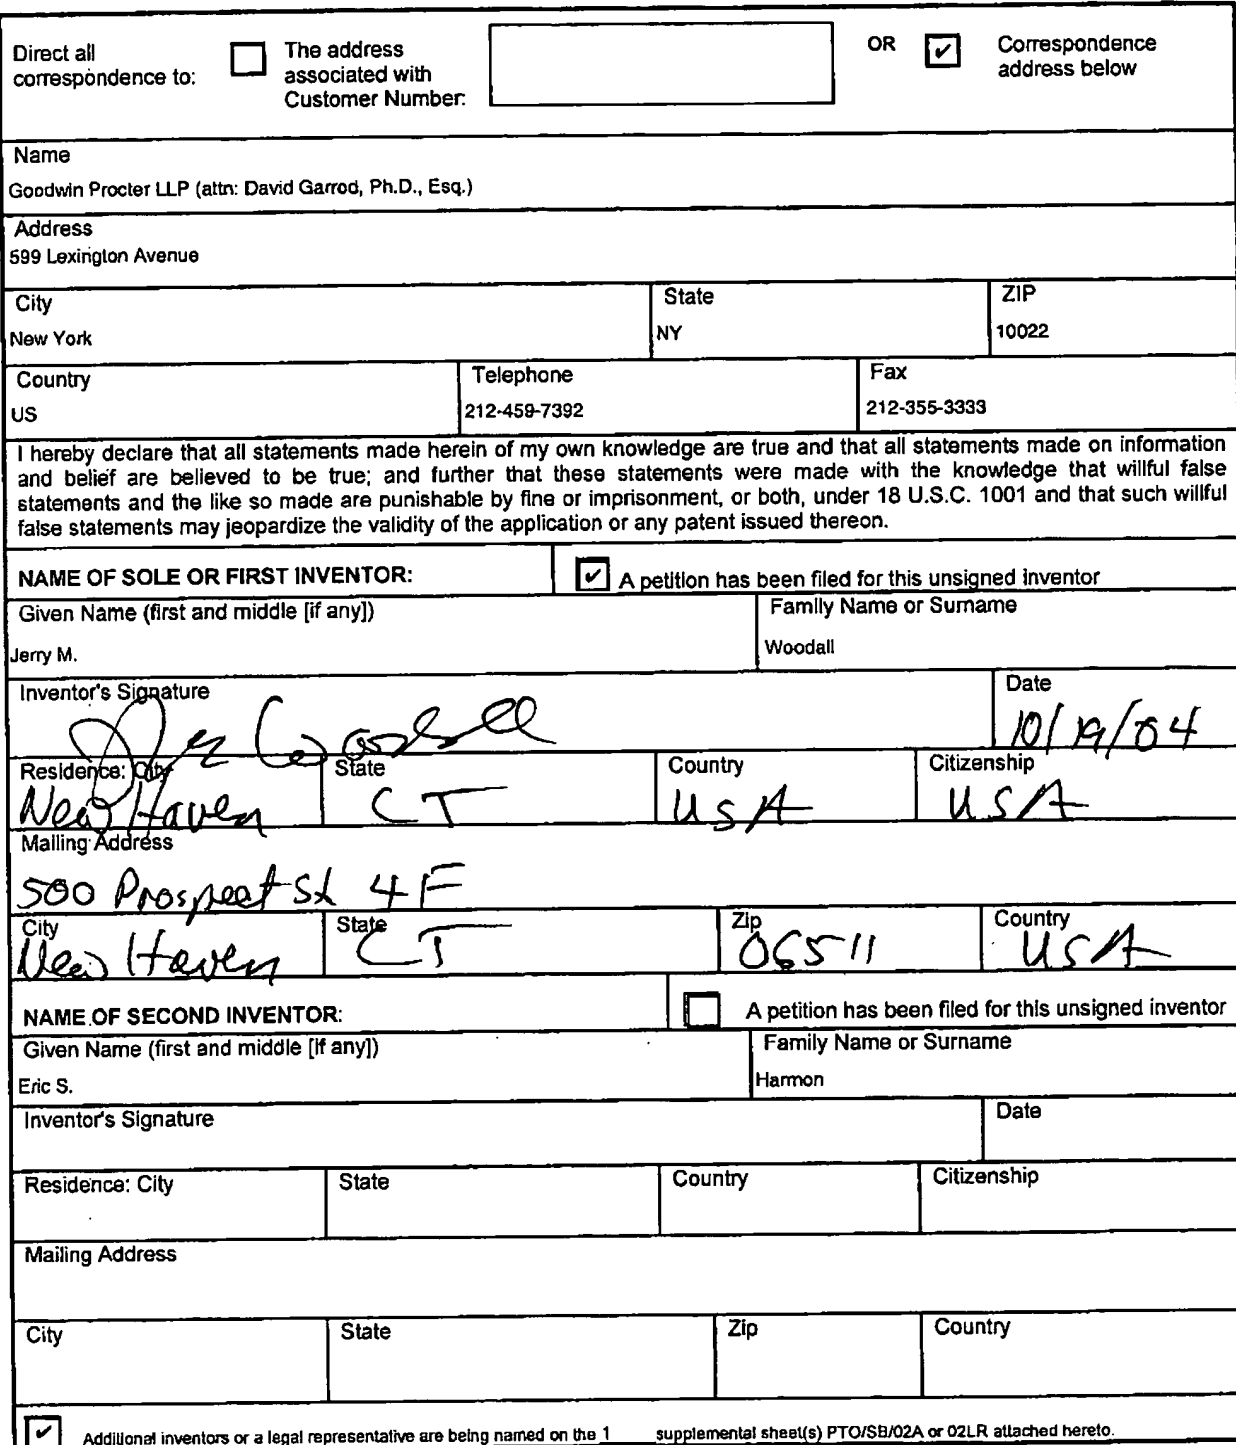 Direct all correspondence to:
The address associated with Customer Number:
OR
✔ Correspondence address below
Name
Goodwin Procter LLP (attn: David Garrod, Ph.D., Esq.)
Address
599 Lexington Avenue
City State ZIP
New York NY 10022
Country Telephone Fax
US 212-459-7392 212-355-3333
I hereby declare that all statements made herein of my own knowledge are true and that all statements made on information
and belief are believed to be true; and further that these statements were made with the knowledge that willful false
statements and the like so made are punishable by fine or imprisonment, or both, under 18 U.S.C. 1001 and that such willful
false statements may jeopardize the validity of the application or any patent issued thereon.
NAME OF SOLE OR FIRST INVENTOR: ✔ A petition has been filed for this unsigned inventor
Given Name (first and middle [if any]) Family Name or Surname
Jerry M. Woodall
Inventor's Signature Date
Jerry Woodall 10/19/04
Residence: City State Country Citizenship
New Haven CT USA USA
Mailing Address
500 Prospect St 4F
City State Zip Country
New Haven CT 06511 USA
NAME OF SECOND INVENTOR: A petition has been filed for this unsigned inventor
Given Name (first and middle [if any]) Family Name or Surname
Eric S. Harmon
Inventor's Signature Date
Residence: City State Country Citizenship
Mailing Address
City State Zip Country
✔ Additional inventors or a legal representative are being named on the 1 supplemental sheet(s) PTO/SB/02A or 02LR attached hereto.